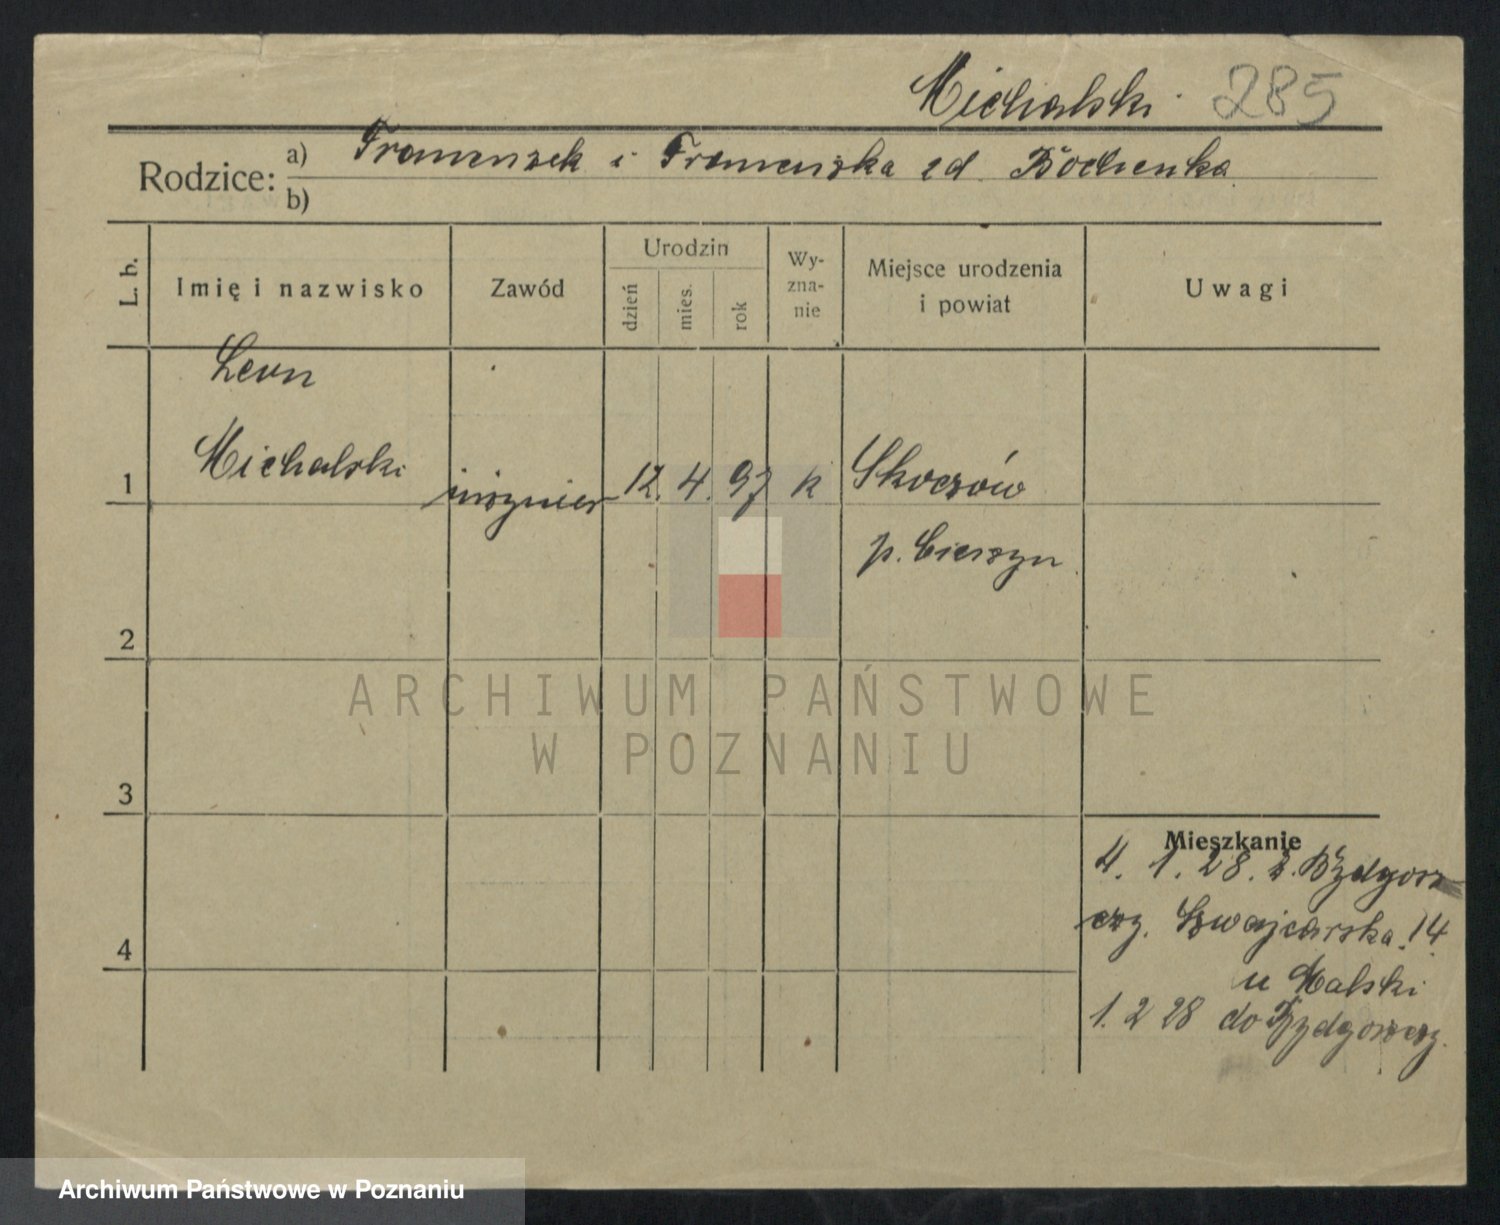 Michalski 285
Rodzice: a) Franciszek i Franciszka zd. Bochenko
b)
L. b.
Imię i nazwisko
Zawód
Urodzin
dzień
mies.
rok
Wy-
zna-
nie
Miejsce urodzenia
i powiat
Uwagi
Leon
1 Michalski inżynier 12. 4. 97 k Skoczów
p. Cieszyn
2
ARCHIWUM PAŃSTWOWE
W POZNANIU
3
Mieszkanie
4. 1. 28. z. Bydgosz
czy. Szwajcarska. 14
4
u Malski
1. 2 28 do Bydgoszczy.
Archiwum Państwowe w Poznaniu